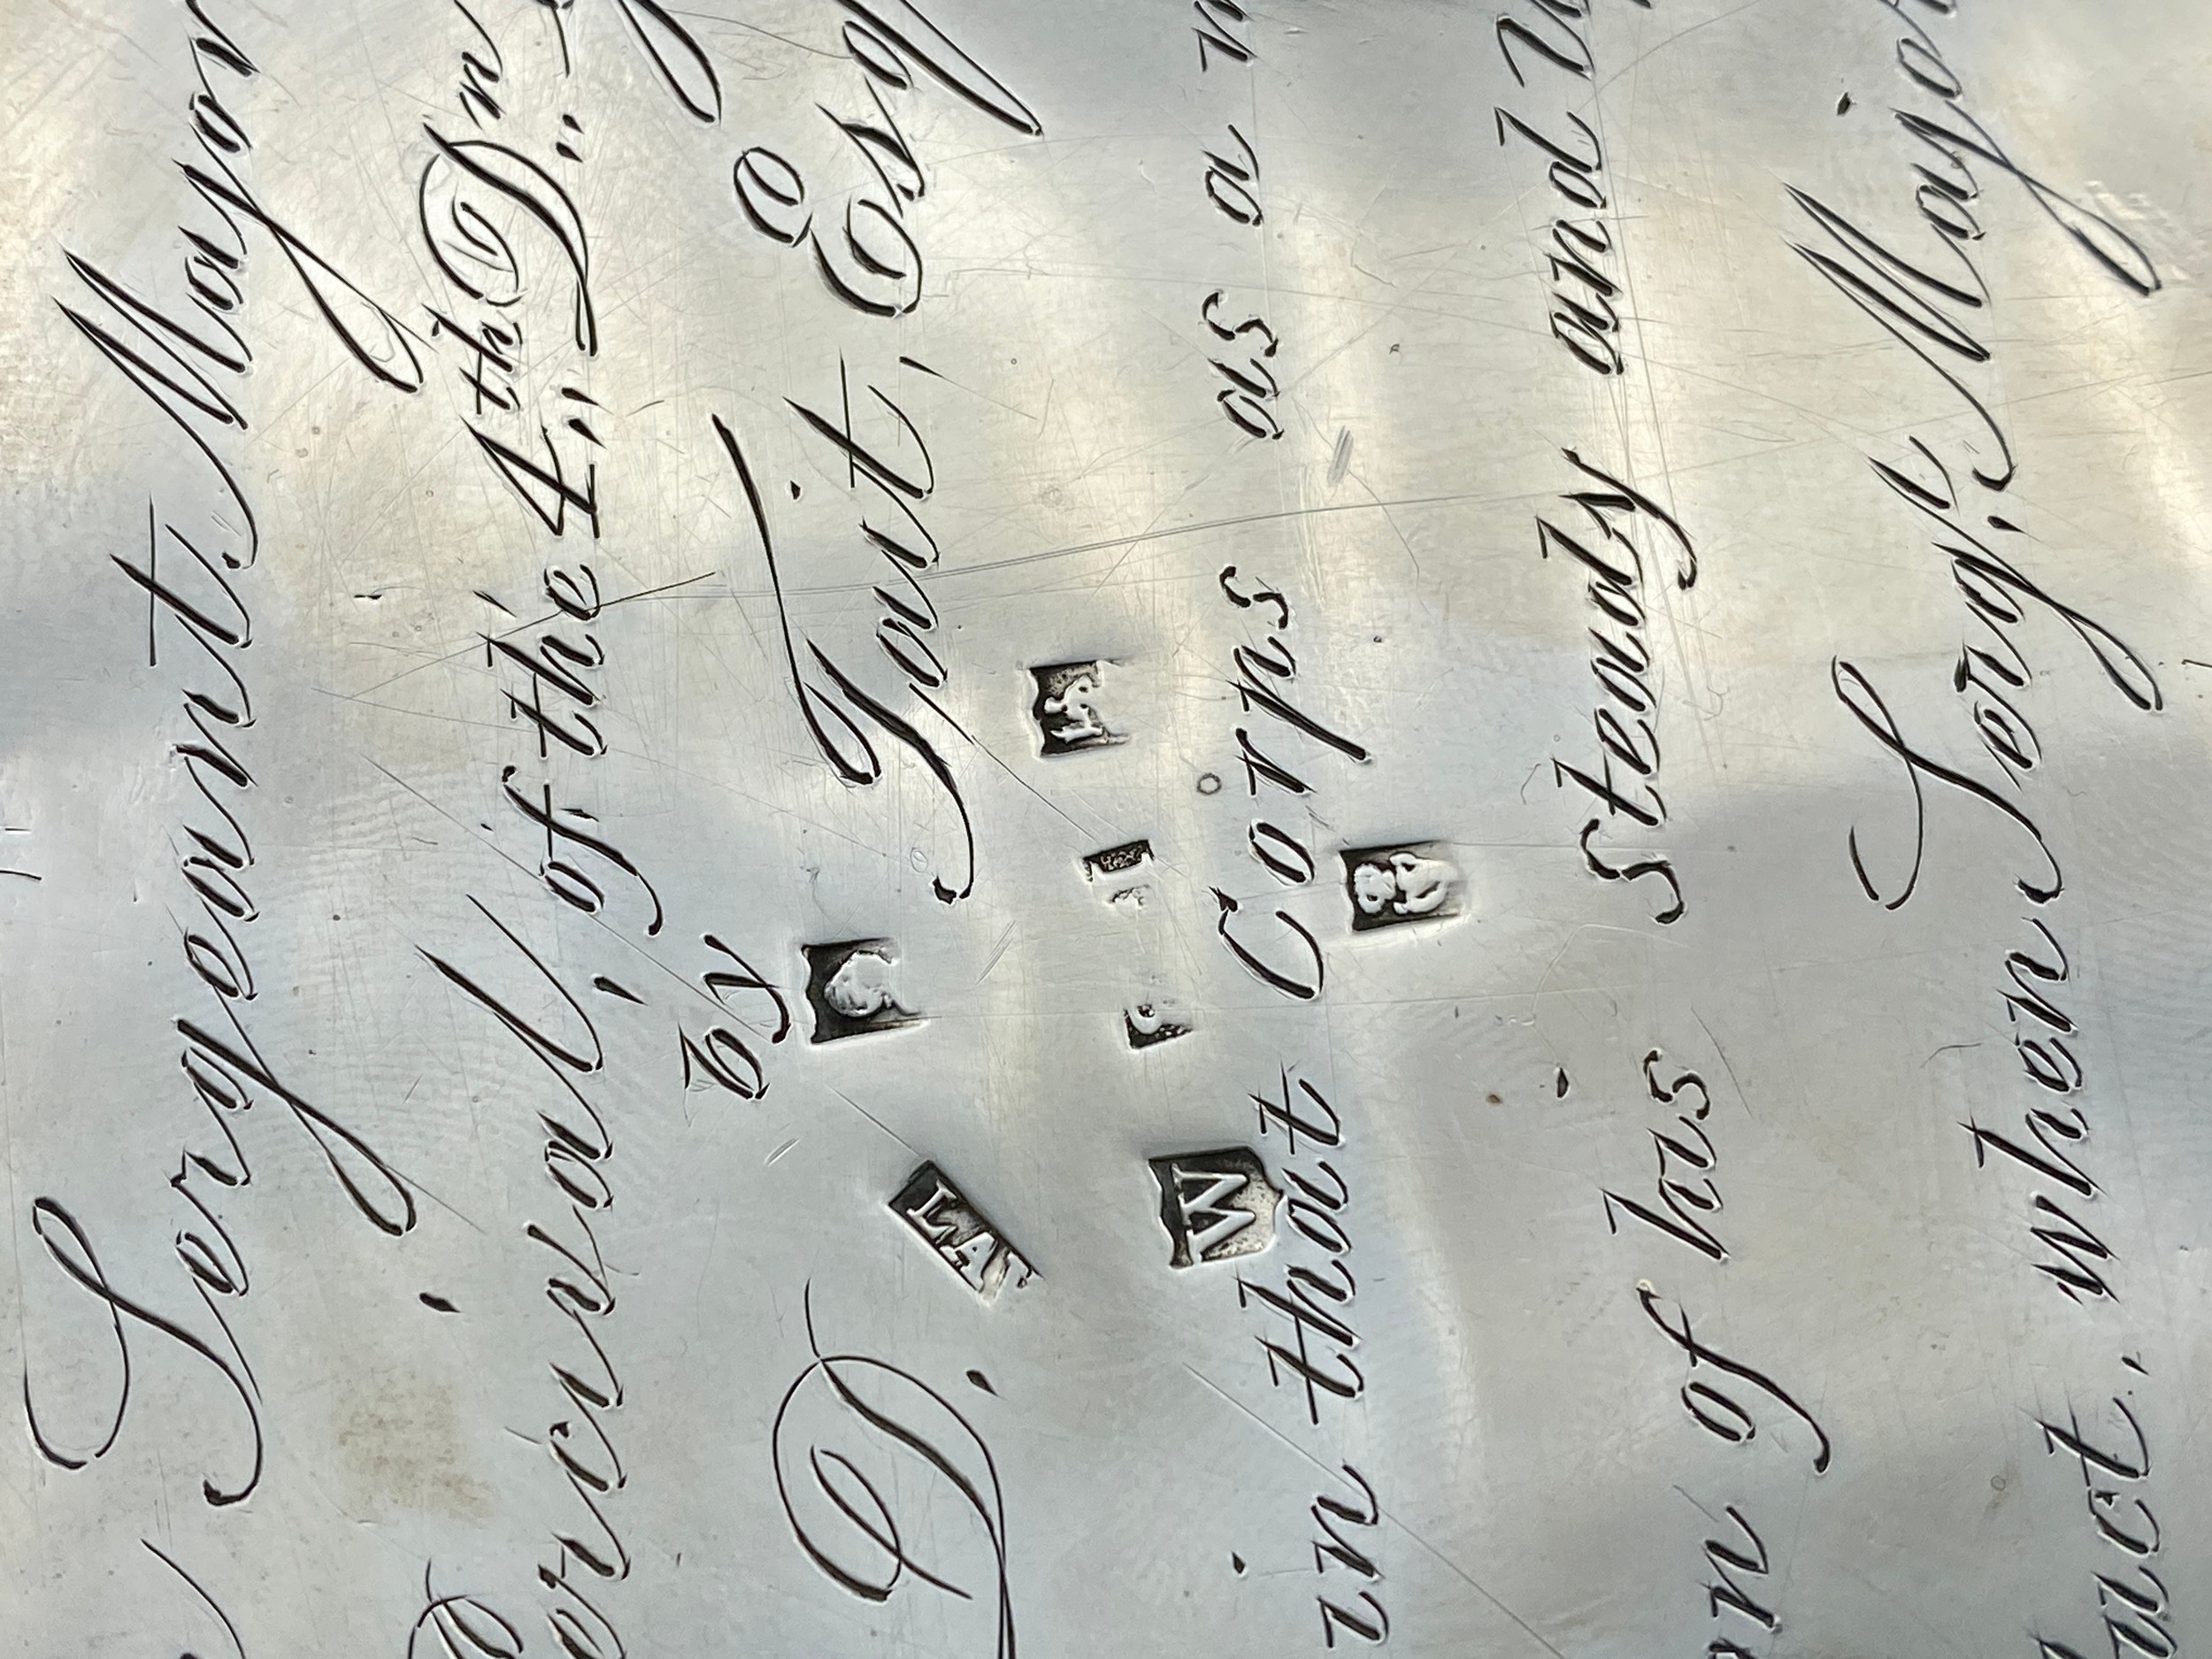 Sergeant Major
ercival, of the 4th Dn
by D. Tait, Esq
in that Corps as a
of his steady and
when Sergt. Major
LA
W